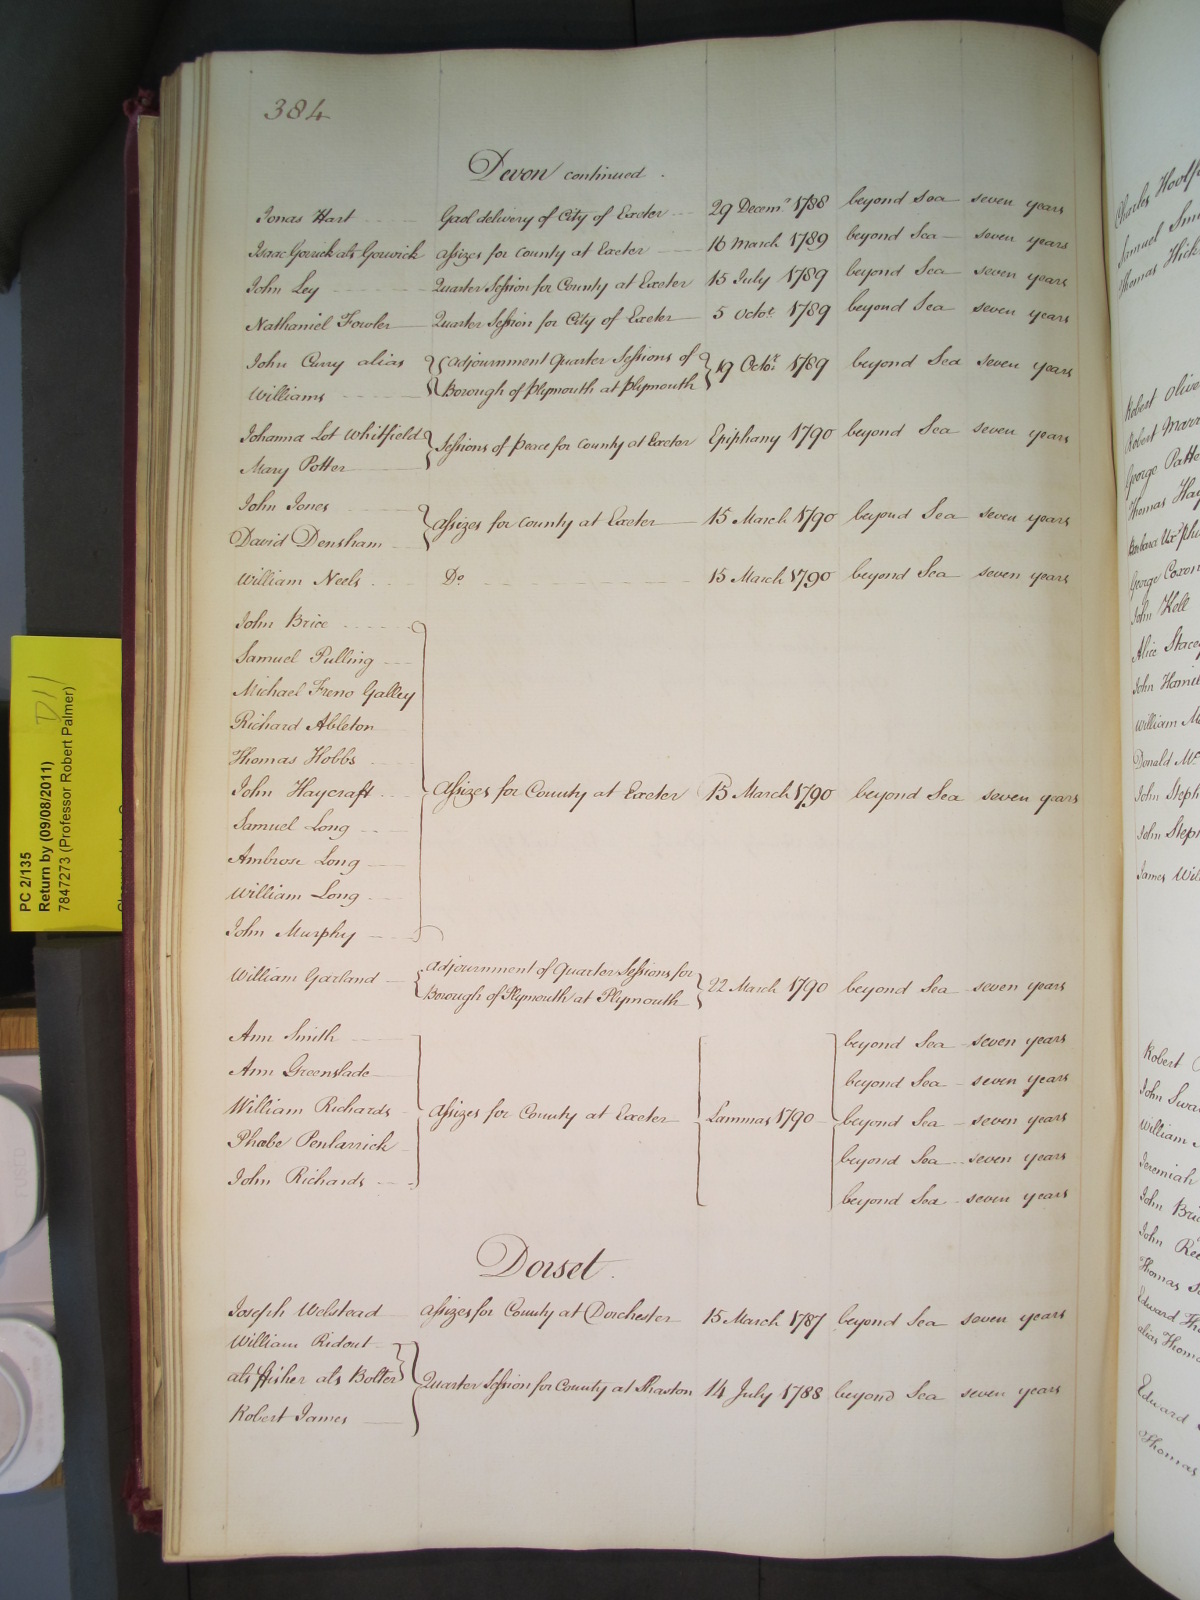 384
Devon continued.
Jonas Hart Gaol delivery of City of Exeter 29 Decemr. 1788 beyond Sea seven years
Isaac Gorrick als Gorwick Assizes for County at Exeter 16 March 1789 beyond Sea seven years
John Ley Quarter Session for County at Exeter 15 July 1789 beyond Sea seven years
Nathaniel Fowler Quarter Session for City of Exeter 5 Octor. 1789 beyond Sea seven years
John Curry alias Adjournment Quarter Sessions of 19 Octor. 1789 beyond Sea seven years
Williams Borough of Plymouth at Plymouth
Johanna Lot Whitfield Sessions of Peace for County at Exeter Epiphany 1790 beyond Sea seven years
Mary Potter
John Jones Assizes for County at Exeter 15 March 1790 beyond Sea seven years
David Densham
William Neels Do. 15 March 1790 beyond Sea seven years
John Brice
Samuel Pulling
Michael Freno Galley
Richard Ableton
Thomas Hobbs
John Haycraft Assizes for County at Exeter 15 March 1790 beyond Sea seven years
Samuel Long
Ambrose Long
William Long
John Murphy
William Garland Adjournment of Quarter Sessions for 22 March 1790 beyond Sea seven years
Borough of Plymouth at Plymouth
Ann Smith beyond Sea seven years
Ann Greenslade beyond Sea seven years
William Richards Assizes for County at Exeter Lammas 1790 beyond Sea seven years
Phœbe Penlarrick beyond Sea seven years
John Richards beyond Sea seven years
Dorset.
Joseph Welstead Assizes for County at Dorchester 15 March 1787 beyond Sea seven years
William Ridout
als Fisher als Bolter Quarter Session for County at Shaston 14 July 1788 beyond Sea seven years
Robert James
PC 2/135
Return by (09/08/2011)
7847273 (Professor Robert Palmer)
D11
Charles
Samuel
Thomas
Robert
Robert
George
Thomas
Barbara
George
John Kell
Alice
John
William
Donald
John
John
James
Robert
John
William
Jeremiah
John
John
Thomas
Edward
alias
Edward
Thomas